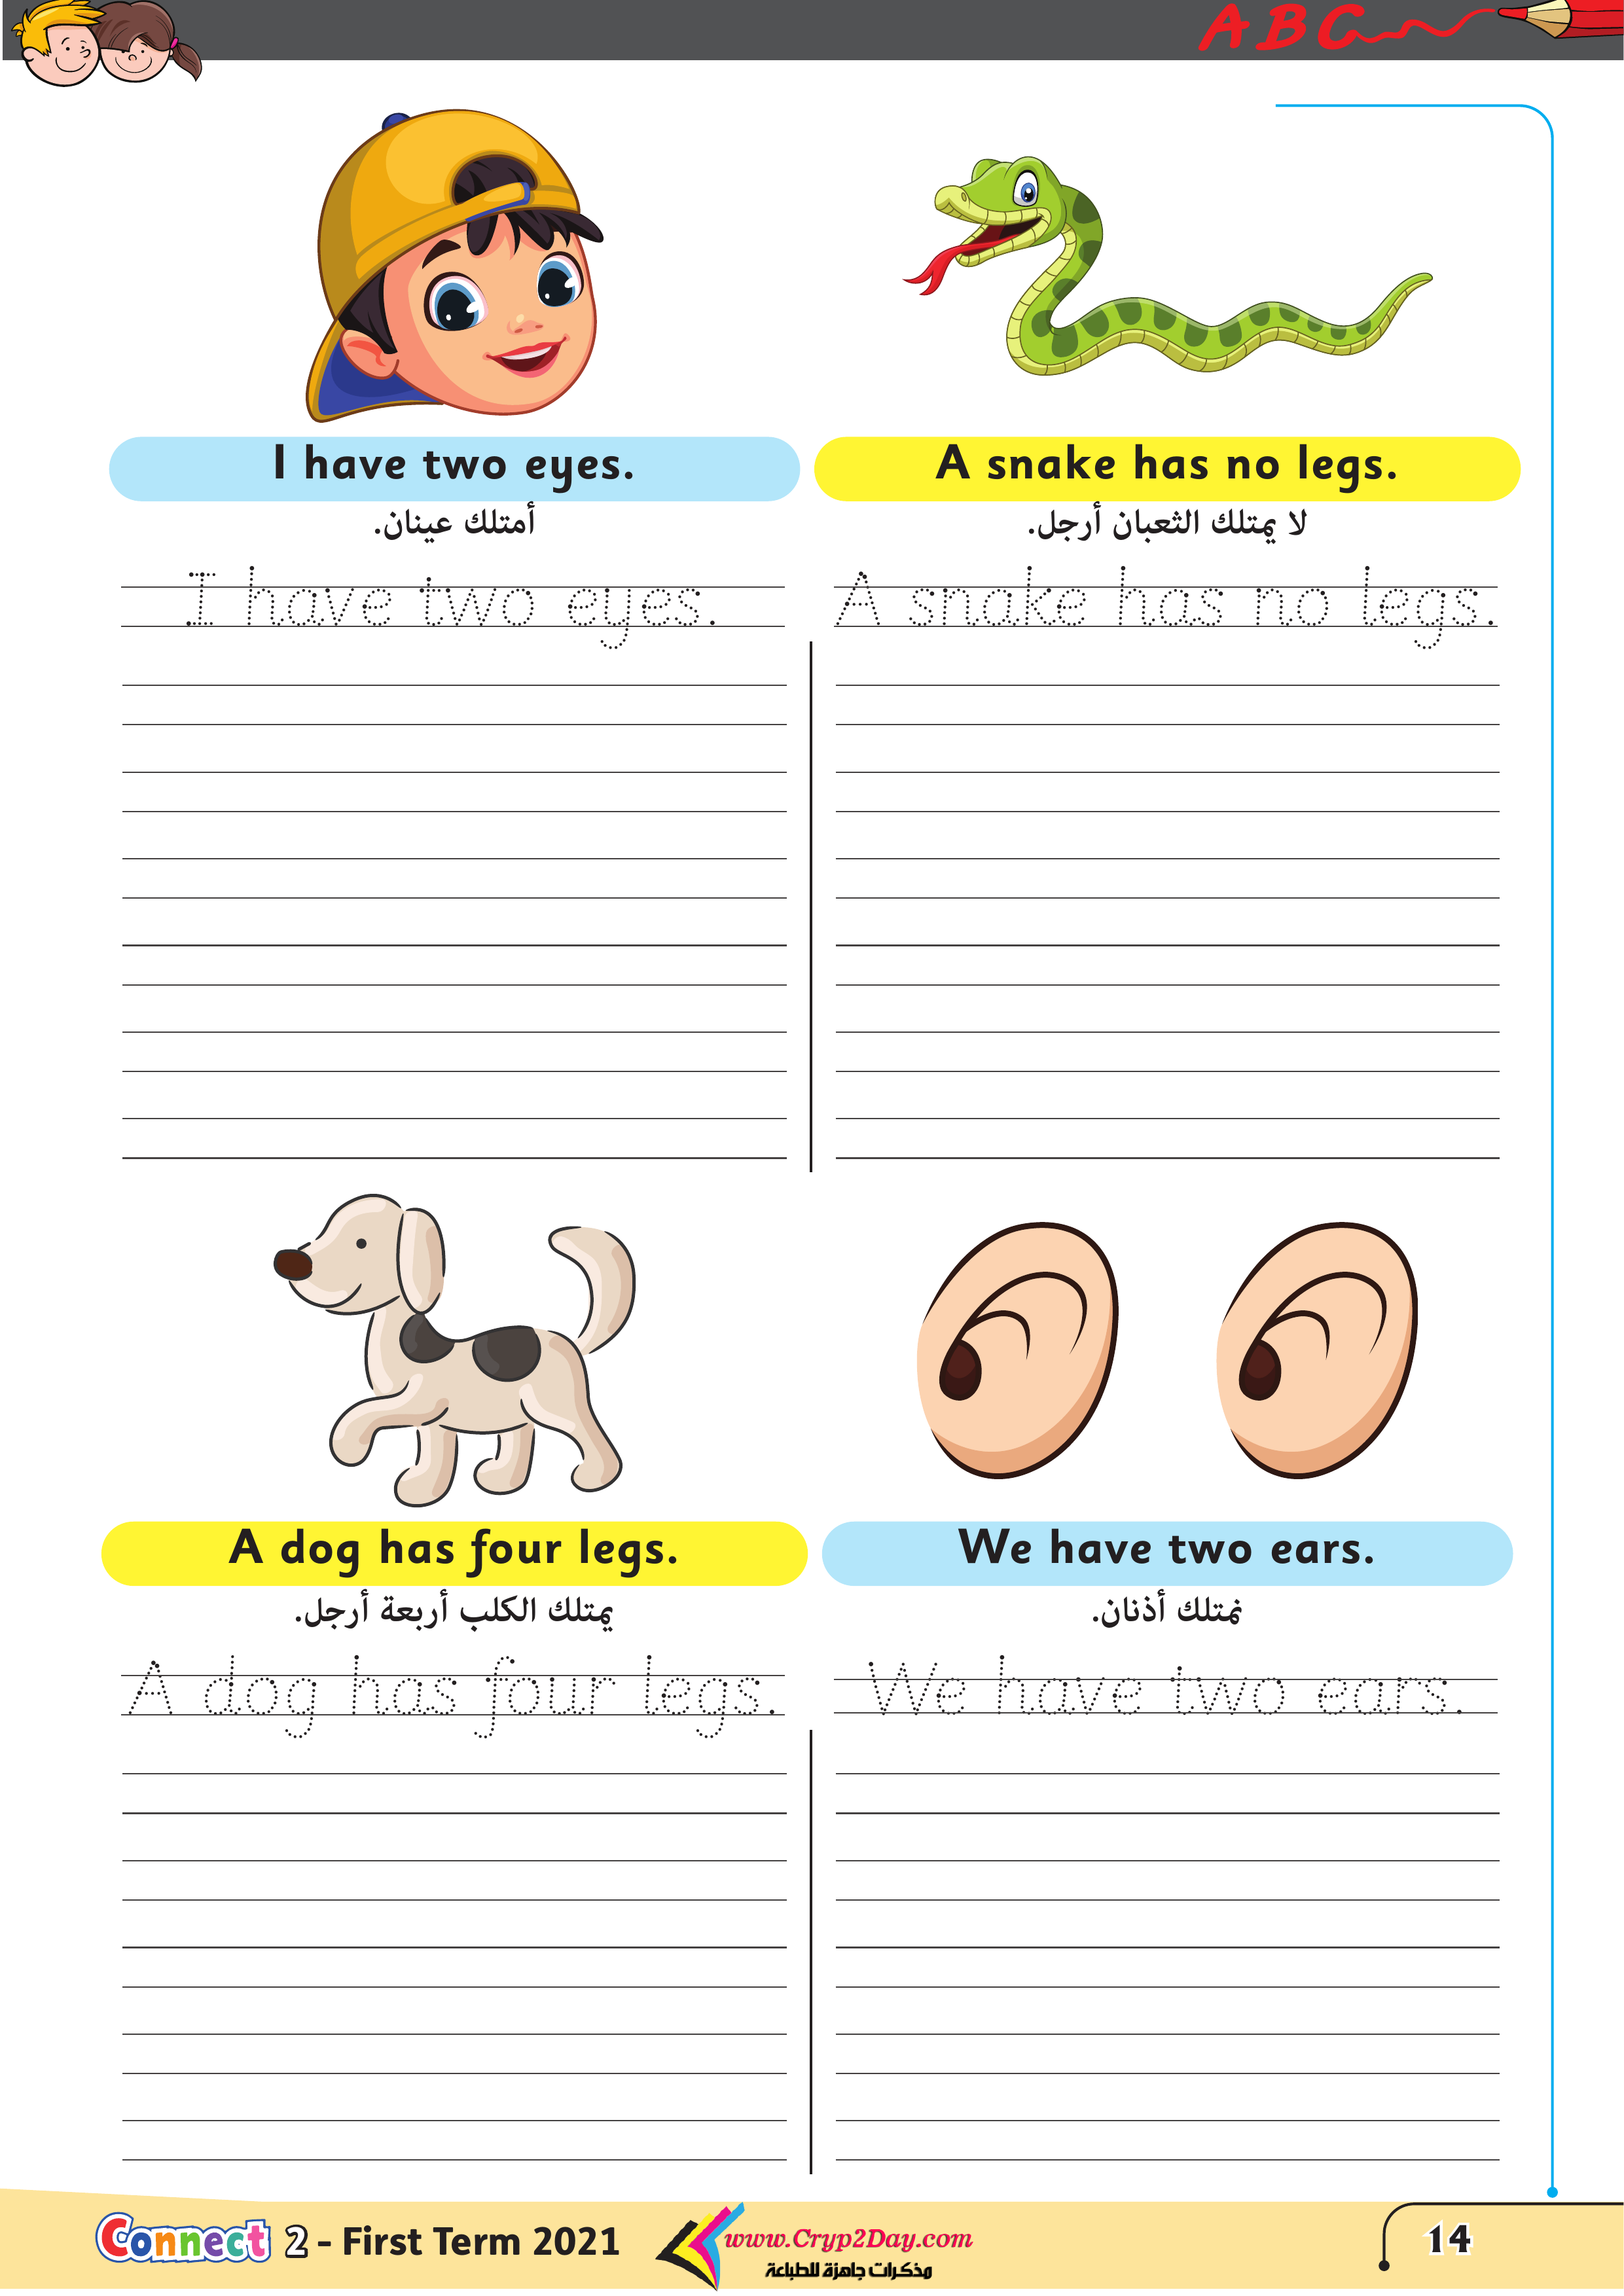 ABC
I have two eyes.
أمتلك عينان.
I have two eyes.
A snake has no legs.
لا يمتلك الثعبان أرجل.
A snake has no legs.
A dog has four legs.
يمتلك الكلب أربعة أرجل.
A dog has four legs.
We have two ears.
نمتلك أذنان.
We have two ears.
Connect 2 - First Term 2021
www.Cryp2Day.com
مذكرات جاهزة للطباعة
14